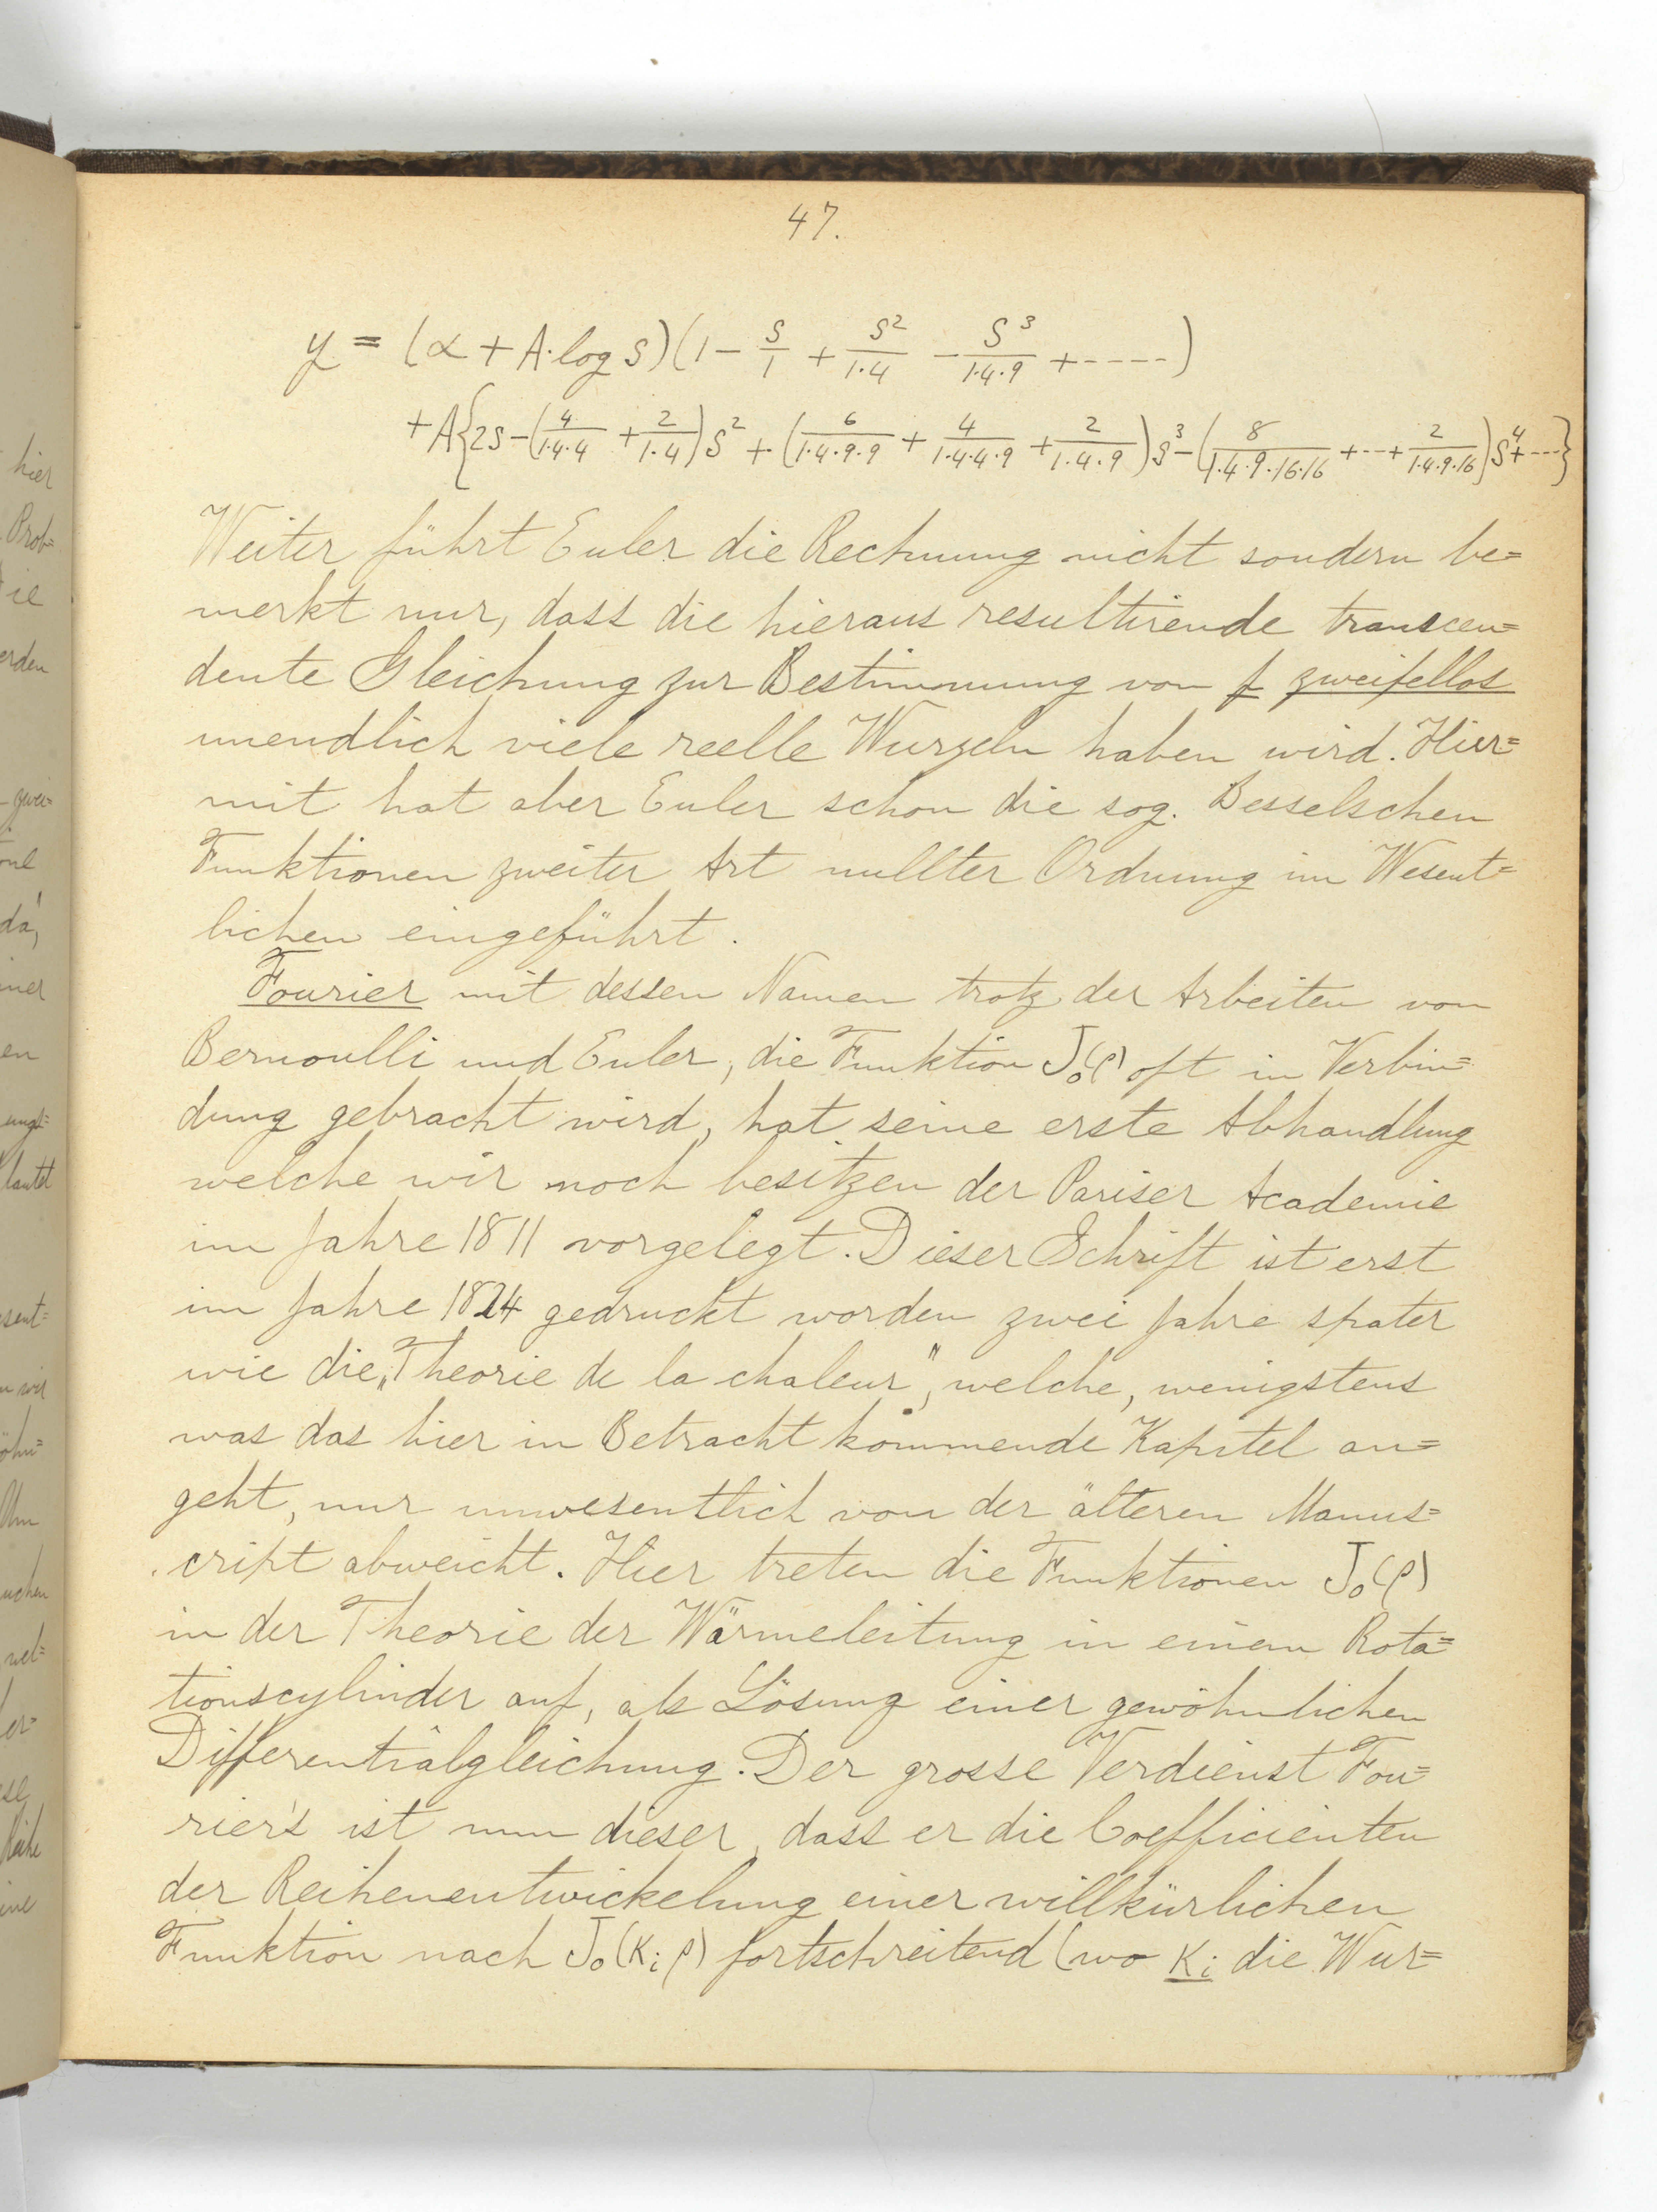 47.
y = (α + A·log s)(1 − s/1 + s²/1·4 − s³/1·4·9 + ‐‐‐‐‐)
+A{2s−(4/1·4·4 + 2/1·4)s² + (6/1·4·9·9 + 4/1·4·4·9 + 2/1·4·9)s³−(8/1·4·9·16·16 +‐‐+ 2/1·4·9·16)s⁴+‐‐‐}
Weiter führt Euler die Rechnung nicht sondern be=
merkt nur, dass die hieraus resultirende transcen=
dente Gleichung zur Bestimmung von f zweifellos
unendlich viele reelle Wurzeln haben wird. Hier=
mit hat aber Euler schon die sog. Besselschen
Funktionen zweiter Art nullter Ordnung im Wesent=
lichen eingeführt.
Fourier mit dessen Namen trotz der Arbeiten von
Bernoulli und Euler, die Funktion J₀(ρ) oft in Verbin=
dung gebracht wird, hat seine erste Abhandlung
welche wir noch besitzen der Pariser Academie
im Jahre 1811 vorgelegt. Dieser Schrift ist erst
im Jahre 1824 gedruckt worden zwei Jahre spater
wie die „Theorie de la chaleur", welche, wenigstens
was das hier in Betracht kommende Kapitel an=
geht, nur unwesentlich von der älteren Manus=
cript abweicht. Hier treten die Funktionen J₀(ρ)
in der Theorie der Wärmeleitung in einem Rota=
tionscylinder auf, als Lösung einer gewöhnlichen
Differentialgleichung. Der grosse Verdienst Fou=
rier's ist nun dieser, dass er die Coefficienten
der Reihenentwickelung einer willkürlichen
Funktion nach J₀(Kᵢρ) fortschreitend (wo Kᵢ die Wur=
hier
Prob=
ie
erden
zwei=
da,
en
lautet
sent=
wel=
er=
Reihe